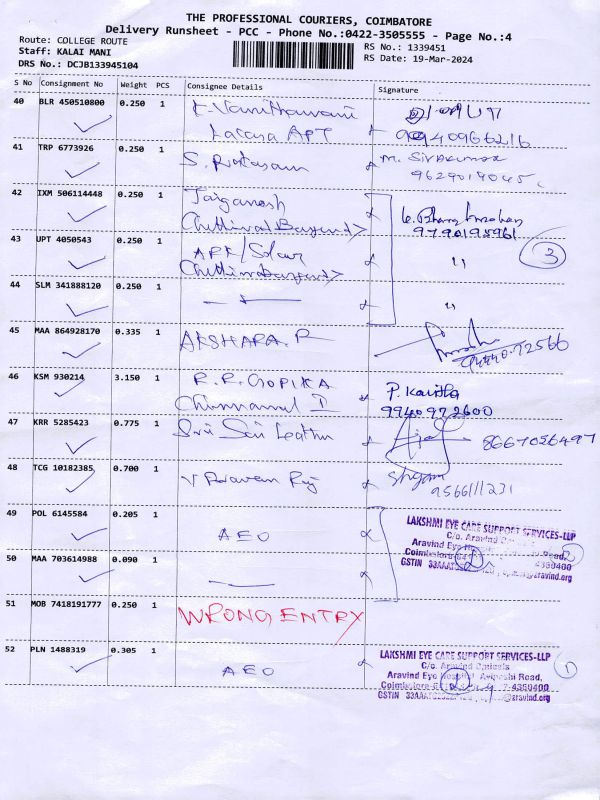 THE PROFESSIONAL COURIERS, COIMBATORE
Delivery Runsheet - PCC - Phone No.:0422-3505555 - Page No.:4
Route: COLLEGE ROUTE
Staff: KALAI MANI
DRS No.: DCJB133945104
RS No.: 1339451
RS Date: 19-Mar-2024
S No Consignment No Weight PCS Consignee Details Signature
40 BLR 450510800 0.250 1
APT
9940966216
41 TRP 6773926 0.250 1 M. Sivakumar
S. 9629019045
42 IXM 506114448 0.250 1 Jaiganesh
9790195961
43 UPT 4050543 0.250 1 "
3
44 SLM 341888120 0.250 1 "
45 MAA 864928170 0.335 1 AKSHARA. R
94440.92566
46 KSM 930214 3.150 1 R. R. GOPIKA P. Kavitha
9940972600
47 KRR 5285423 0.775 1 Sri Sai 8667056497
48 TCG 10182385 0.700 1 V Praveen Raj Shyam
9566111231
49 POL 6145584 0.205 1 AEO
LAKSHMI EYE CARE SUPPORT SERVICES-LLP
C/o. Aravind
Aravind Eye Road,
Coimbatore 4350400
GSTIN aravind.org
2
50 MAA 703614988 0.090 1
51 MOB 7418191777 0.250 1 WRONG ENTRY
52 PLN 1488319 0.305 1 AEO
LAKSHMI EYE CARE SUPPORT SERVICES-LLP
C/o. Aravind Opticals
Aravind Eye Hospital, Avinashi Road,
Coimbatore 4350400
GSTIN @aravind.org
1